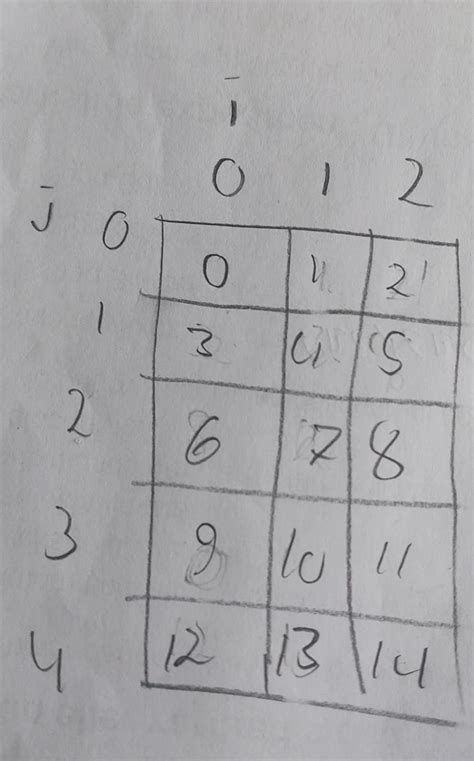 i
0 1 2
j 0 0 1 2
1 3 4 5
2 6 7 8
3 9 10 11
4 12 13 14